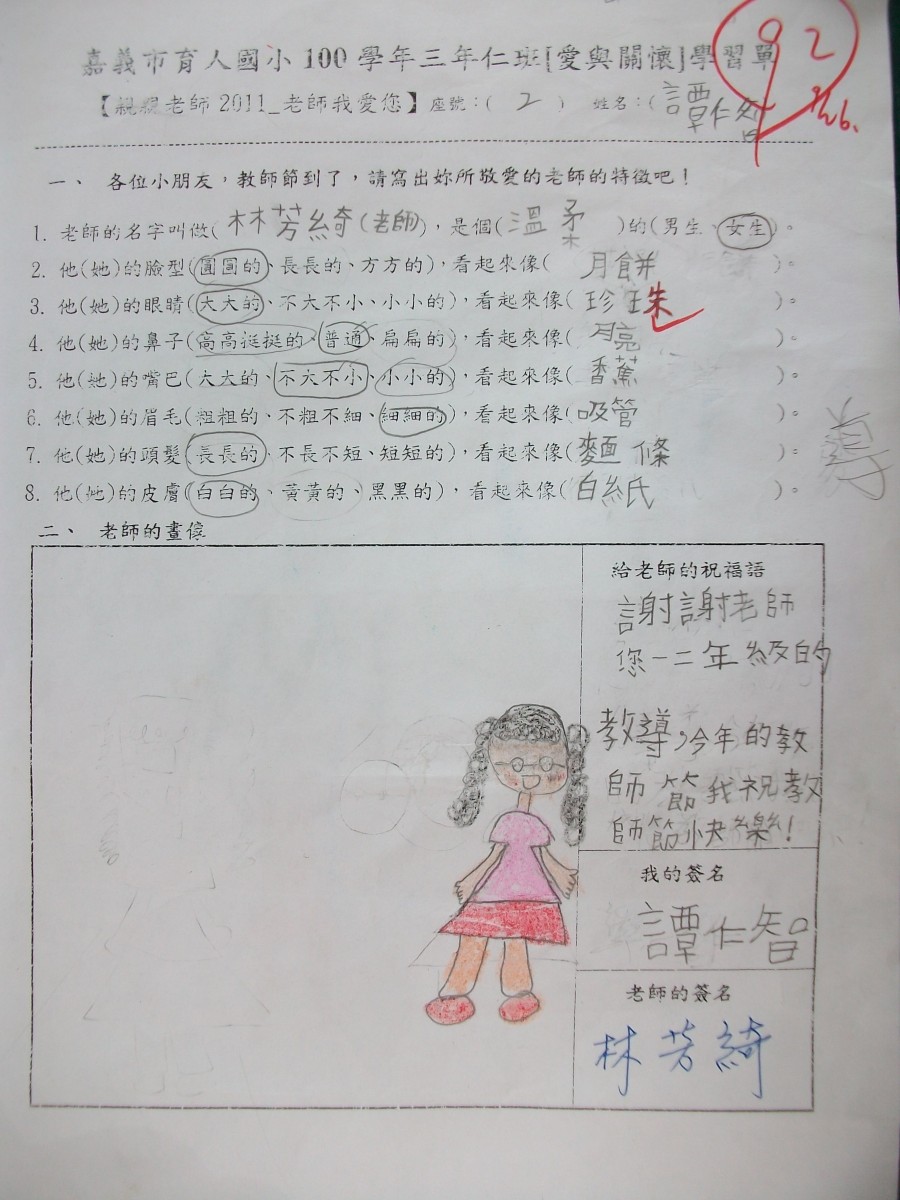 嘉義市育人國小100學年三年仁班[愛與關懷]學習單
92
【親親老師2011_老師我愛您】座號:( 2 ) 姓名:(譚仁智
一、 各位小朋友,教師節到了,請寫出妳所敬愛的老師的特徵吧!
1. 老師的名字叫做(林芳綺(老師)),是個(溫柔)的(男生、女生)。
2. 他(她)的臉型(圓圓的、長長的、方方的),看起來像(月餅)。
3. 他(她)的眼睛(大大的、不大不小、小小的),看起來像(珍珠)。
4. 他(她)的鼻子(高高挺挺的、普通、扁扁的),看起來像(月亮)。
5. 他(她)的嘴巴(大大的、不大不小、小小的),看起來像(香蕉)。
6. 他(她)的眉毛(粗粗的、不粗不細、細細的),看起來像(吸管)。
7. 他(她)的頭髮(長長的、不長不短、短短的),看起來像(麵條)。
8. 他(她)的皮膚(白白的、黃黃的、黑黑的),看起來像(白紙)。
導
二、 老師的畫像
給老師的祝福語
謝謝老師
您一二年級的
教導,今年的教
師節我祝教
師節快樂!
我的簽名
譚仁智
老師的簽名
林芳綺